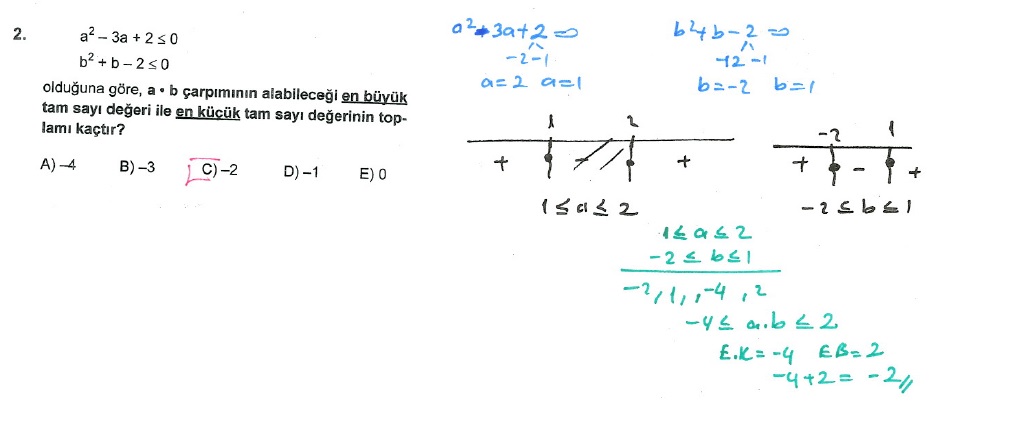 2.
a² – 3a + 2 ≤ 0
b² + b – 2 ≤ 0
olduğuna göre, a • b çarpımının alabileceği en büyük
tam sayı değeri ile en küçük tam sayı değerinin top-
lamı kaçtır?
A) –4 B) –3 C) –2 D) –1 E) 0
a²-3a+2=0
-2 -1
a=2 a=1
b²+b-2=0
+2 -1
b=-2 b=1
1 2
+ - +
1 ≤ a ≤ 2
-2 1
+ - +
-2 ≤ b ≤ 1
1 ≤ a ≤ 2
-2 ≤ b ≤ 1
-2, 1, , -4, 2
-4 ≤ a.b ≤ 2
E.K = -4 EB = 2
-4 + 2 = -2 //